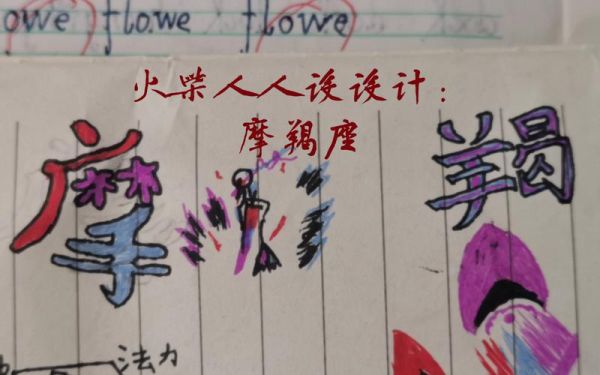 owe flowe flowe
火柴人人设设计：
摩羯座
摩 羯
法力